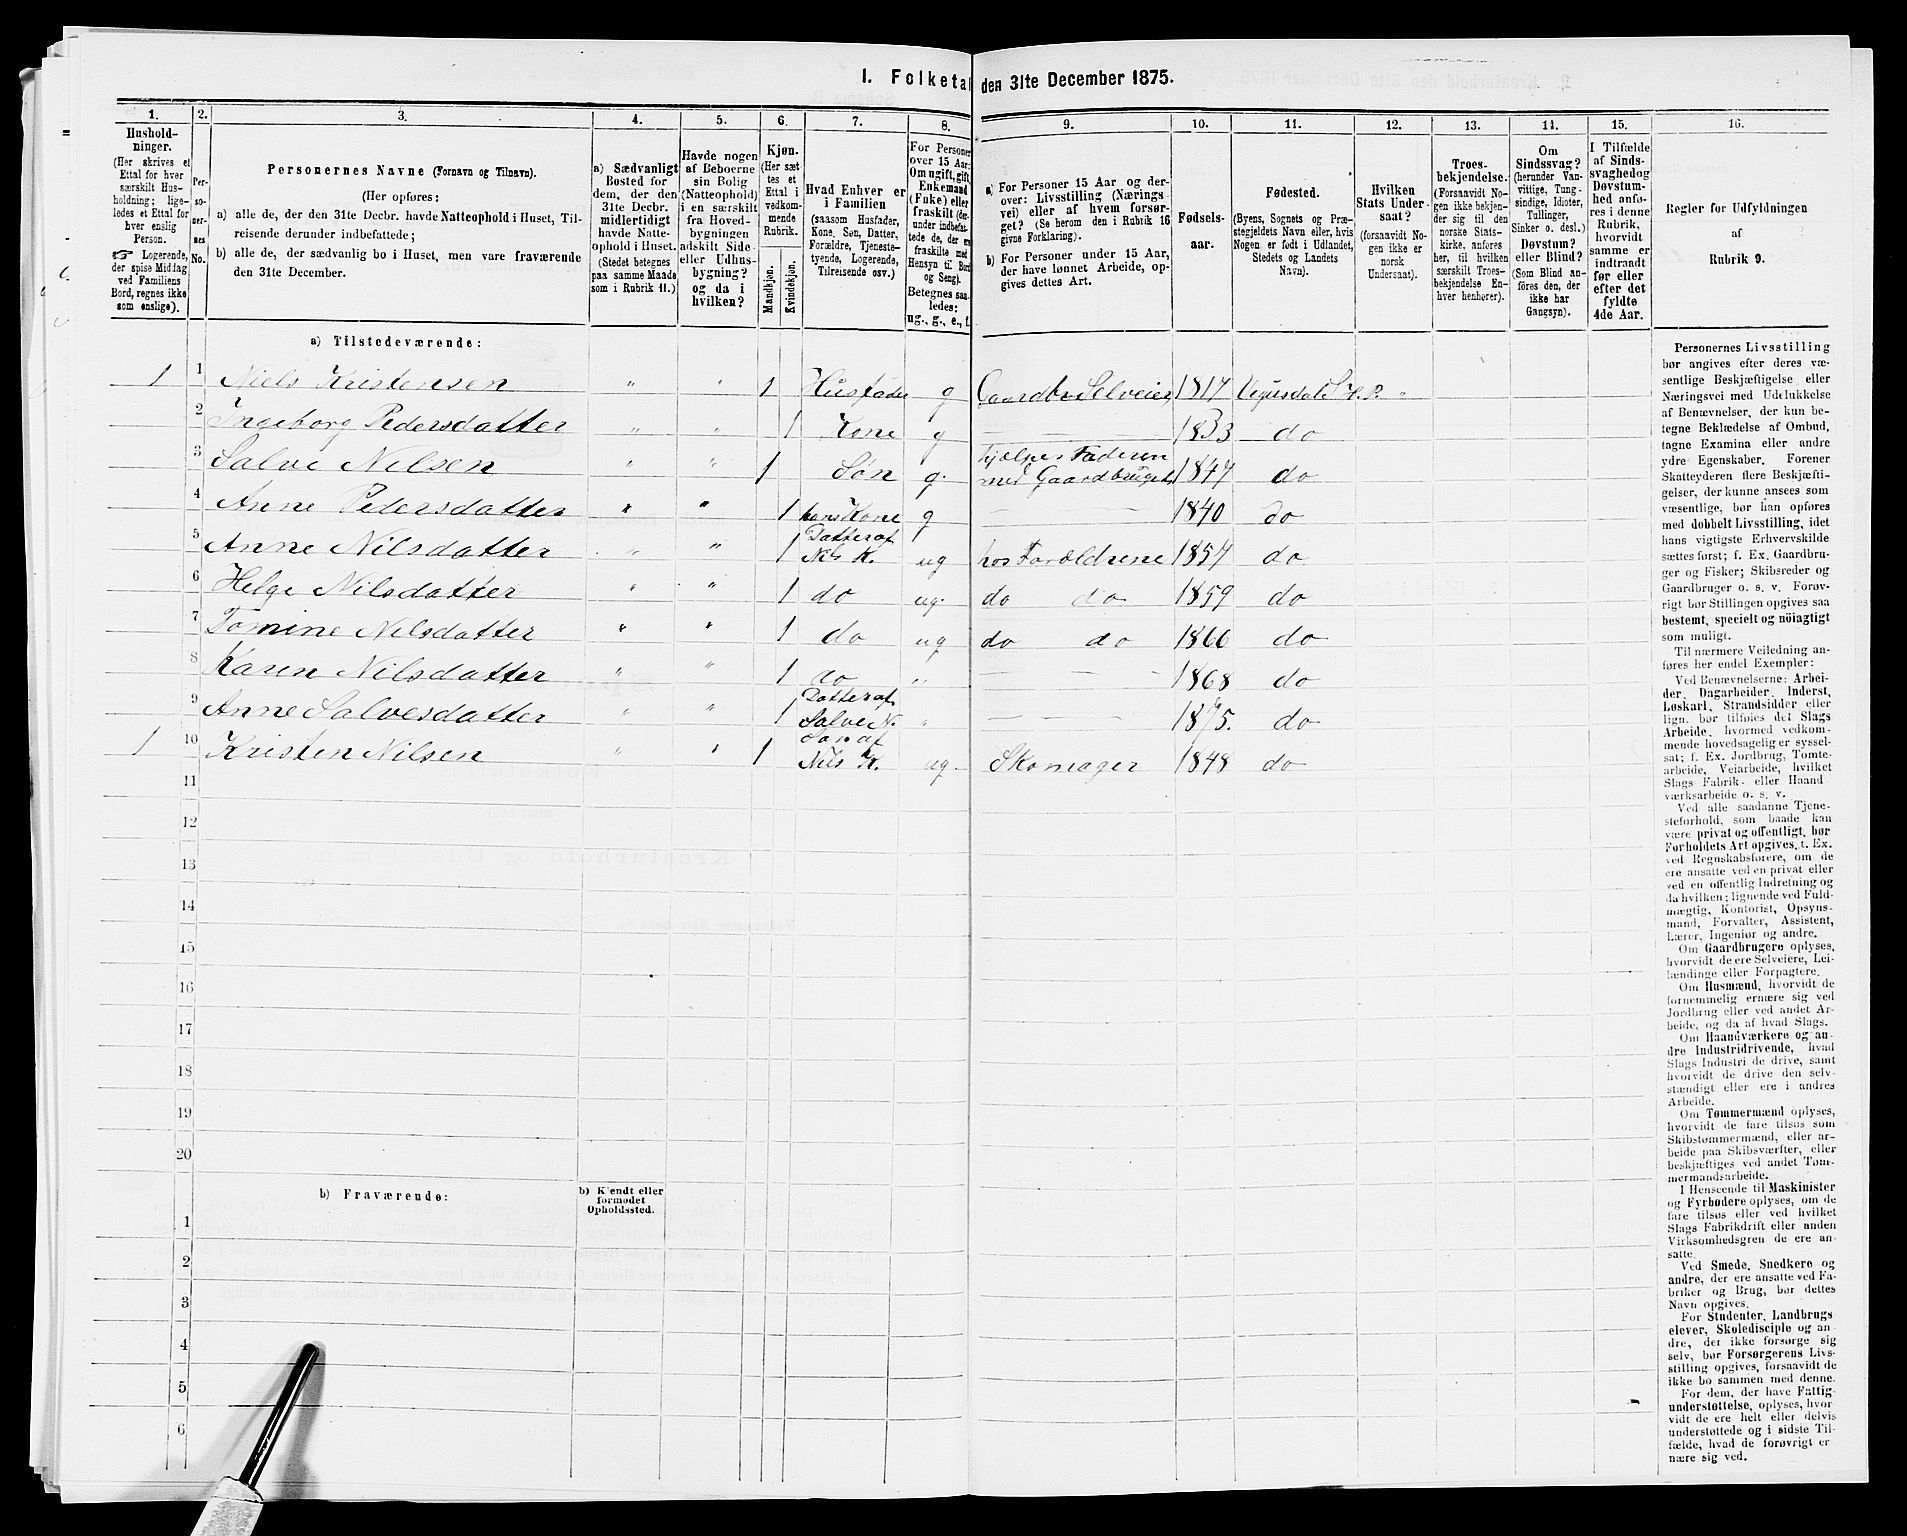 I. Folketal den 31te December 1875.
1. 2. 3. 4. 5. 6. 7. 8. 9. 10. 11. 12. 13. 14. 15. 16.
Hushold-
ninger.
(Her skrives et
Ettal for hver
særskilt Hus-
holdning; lige-
ledes et Ettal for
hver enslig
Person.
☞ Logerende,
der spise Middag
ved Familiens
Bord, regnes ikke
som enslige).
Per-
so-
ner-
nes
No.
Personernes Navne (Fornavn og Tilnavn).
(Her opføres:
a) alle de, der den 31te Decbr. havde Natteophold i Huset, Til-
reisende derunder indbefattede;
b) alle de, der sædvanlig bo i Huset, men vare fraværende
den 31te December.
a) Sædvanligt
Bosted for
dem, der den
31te Decbr.
midlertidigt
havde Natte-
ophold i Huset.
(Stedet betegnes
paa samme Maade
som i Rubrik 11.)
Havde nogen
af Beboerne
sin Bolig
(Natteophold)
i en særskilt
fra Hoved-
bygningen
adskilt Side-
eller Udhus-
bygning?
og da i
hvilken?
Kjøn.
(Her sæt-
tes et
Ettal i
vedkom-
mende
Rubrik.
Mandkjøn.
Kvindekjøn.
Hvad Enhver er
i Familien
(saasom Husfader,
Kone, Søn, Datter,
Forældre, Tjeneste-
tyende, Logerende,
Tilreisende osv.)
For Personer
over 15 Aar:
Om ugift, gift,
Enkemand
(Enke) eller
fraskilt (der-
under indbefat-
tede de, der ere
fraskilte med
Hensyn til Bord
og Seng).
Betegnes saa-
ledes:
ug., g., e., f.
a) For Personer 15 Aar og der-
over: Livsstilling (Nærings-
vei) eller af hvem forsør-
get? (Se herom den i Rubrik 16
givne Forklaring).
b) For Personer under 15 Aar,
der have lønnet Arbeide, op-
gives dettes Art.
Fødsels-
aar.
Fødested.
(Byens, Sognets og Præ-
stegjeldets Navn eller, hvis
Nogen er født i Udlandet,
Stedets og Landets
Navn).
Hvilken
Stats Under-
saat?
(forsaavidt No-
gen ikke er
norsk
Undersaat).
Troes-
bekjendelse.
(Forsaavidt No-
gen ikke bekjen-
der sig til den
norske Stats-
kirke, anføres
her, til hvilken
særskilt Troes-
bekjendelse En-
hver henhører).
Om
Sindssvag?
(herunder Van-
vittige, Tung-
sindige, Idioter,
Tullinger,
Sinker o. desl.)
Døvstum?
eller Blind?
(Som Blind an-
føres den, der
ikke har
Gangsyn).
I Tilfælde
af Sinds-
svaghed og
Døvstum-
hed anfø-
res i denne
Rubrik,
hvorvidt
samme er
indtraadt
før eller
efter det
fyldte
4de Aar.
Regler for Udfyldningen
af
Rubrik 9.
a) Tilstedeværende:
1 1 Niels Kristensen " " 1 Husfader g Gaardbr Selveier 1817 Vegusdal S. H. P. "
2 Ingeborg Pedersdatter " " 1 Kone g — — 1833 do
3 Salve Nilsen " " 1 Søn g. hjælper Faderen
med Gaardbruget 1847 do
4 Anne Pedersdatter " " 1 hans Kone g — — 1840 do
5 Anne Nilsdatter " " 1 Datter af
Nils K. ug hos Forældrene 1857 do
6 Helge Nilsdatter " " 1 do ug. do do 1859 do
7 Tomine Nilsdatter " " 1 do ug do do 1860 do
8 Karen Nilsdatter " " 1 do " — — 1868 do
9 Anne Salvesdatter " " 1 Datter af
Salve N. " — — 1875. do
1 10 Kristen Nilsen " " 1 Søn af
Nils K. ug. Skomager 1848 do
11
12
13
14
15
16
17
18
19
20
b) Fraværende:
b) Kjendt eller
formodet
Opholdssted.
1
2
3
4
5
6
Personernes Livsstilling
bør angives efter deres væ-
sentlige Beskjæftigelse eller
Næringsvei med Udelukkelse
af Benævnelser, der kun be-
tegne Beklædelse af Ombud,
tagne Examina eller andre
ydre Egenskaber. Forener
Skatteyderen flere Beskjæfti-
gelser, der kunne ansees som
væsentlige, bør han opføres
med dobbelt Livsstilling, idet
hans vigtigste Erhvervskilde
sættes først; f. Ex. Gaardbru-
ger og Fisker; Skibsreder og
Gaardbruger o. s. v. Forøv-
rigt bør Stillingen opgives saa
bestemt, specielt og nöiagtigt
som muligt.
Til nærmere Veiledning an-
føres her endel Exempler:
Ved Benævnelserne: Arbei-
der, Dagarbeider, Inderst,
Løskarl, Strandsidder eller
lign. bør tilføies det Slags
Arbeide, hvormed vedkom-
mende hovedsagelig er syssel-
sat; f. Ex. Jordbrug, Tomte-
arbeide, Veiarbeide, hvilket
Slags Fabrik- eller Haand
værksarbeide o. s. v.
Ved alle saadanne Tjene-
steforhold, som baade kan
være privat og offentligt, bør
Forholdets Art opgives, t. Ex.
ved Regnskabsførere, om de
ere ansatte ved en privat eller
ved en offentlig Indretning og
da hvilken; lignende ved Fuld-
mægtig, Kontorist, Opsyns-
mand, Forvalter, Assistent,
Lærer, Ingeniør og andre.
Om Gaardbrugere oplyses,
hvorvidt de ere Selveiere, Lei-
lændinge eller Forpagtere.
Om Husmænd, hvorvidt de
fornemmelig ernære sig ved
Jordbrug eller ved andet Ar-
beide, og da af hvad Slags.
Om Haandværkere og an-
dre Industridrivende, hvad
Slags Industri de drive, samt
hvorvidt de drive den selv-
stændigt eller ere i andres
Arbeide.
Om Tømmermænd oplyses,
hvorvidt de fare tilsøs som
Skibstømmermænd, eller ar-
beide paa Skibsværfter, eller
beskjæftiges ved andet Tøm-
mermandsarbeide.
I Henseende til Maskinister
og Fyrbødere oplyses, om de
fare tilsøs eller ved hvilket
Slags Fabrikdrift eller anden
Virksomhedsgren de ere an-
satte.
Ved Smede, Snedkere og
andre, der ere ansatte ved Fa-
briker og Brug, bør dettes
Navn opgives.
For Studenter, Landbrugs
elever, Skoledisciple og an
dre, der ikke forsørge sig
selv, bør Forsørgerens Livs-
stilling opgives, forsaavidt de
ikke bo sammen med denne.
For dem, der have Fattig-
understøttelse, oplyses, hvor-
vidt de ere helt eller delvis
understøttede og i sidste Til-
fælde, hvad de forøvrigt er
nære sig ved.